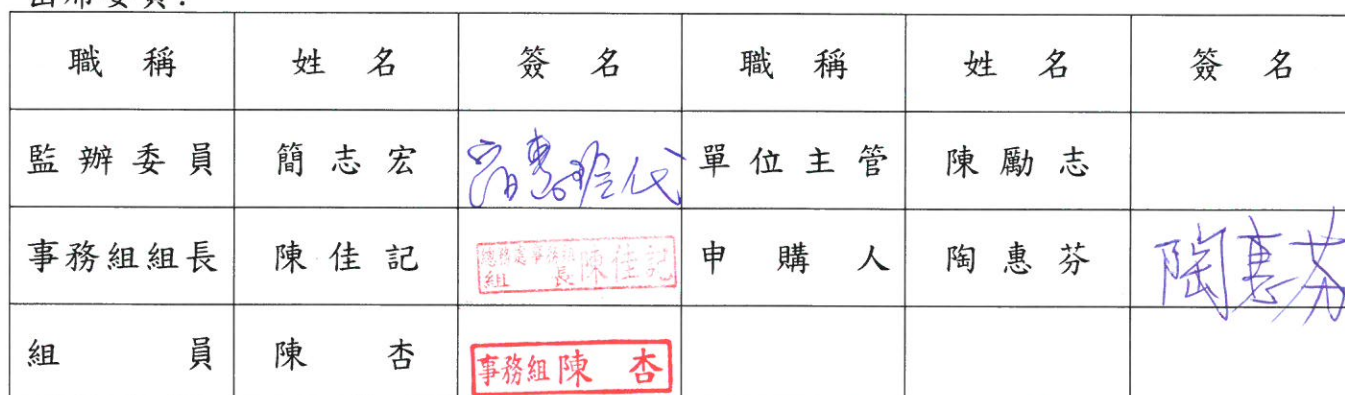 出席委員:
職稱 姓名 簽名 職稱 姓名 簽名
監辦委員 簡志宏 代 單位主管 陳勵志
事務組組長 陳佳記 總務處事務組 組長 陳佳記 申購人 陶惠芬 陶惠芬
組員 陳杏 事務組 陳杏